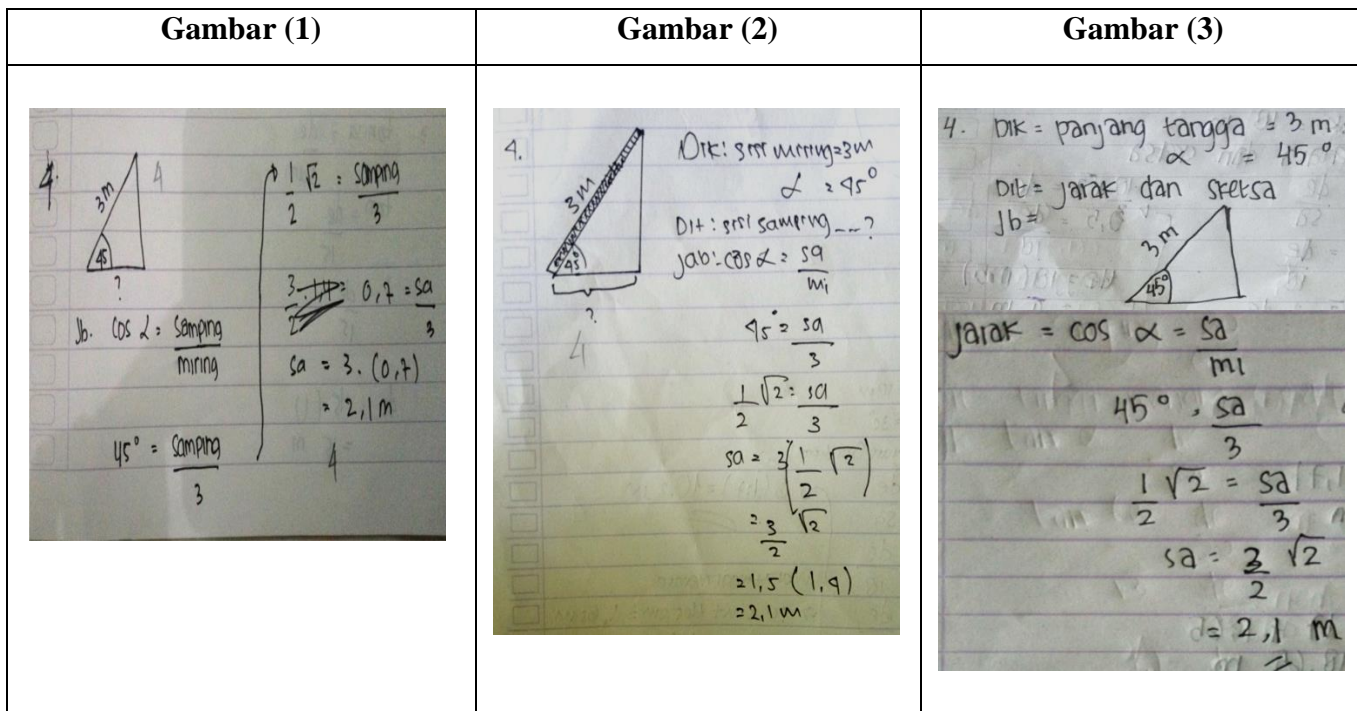 Gambar (1)
4.
4
3 m
45
?
Jb. cos α = samping
miring
45° = samping
3
1 √2 = samping
2 3
0,7 = sa
3
sa = 3. (0,7)
= 2,1 m
4
Gambar (2)
4.
3 m
45°
?
4
Dik: sisi miring=3m
α = 45°
Dit: sisi samping --?
jab: cos α = sa
mi
45° = sa
3
1 √2 = sa
2 3
sa = 3(1 √2)
2
= 3 √2
2
= 1,5 (1,4)
= 2,1 m
Gambar (3)
4. Dik = panjang tangga = 3 m
α = 45°
Dit = jarak dan sketsa
Jb =
3 m
45°
Jarak = cos α = sa
mi
45° = sa
3
1 √2 = sa
2 3
sa = 3 √2
2
= 2,1 m